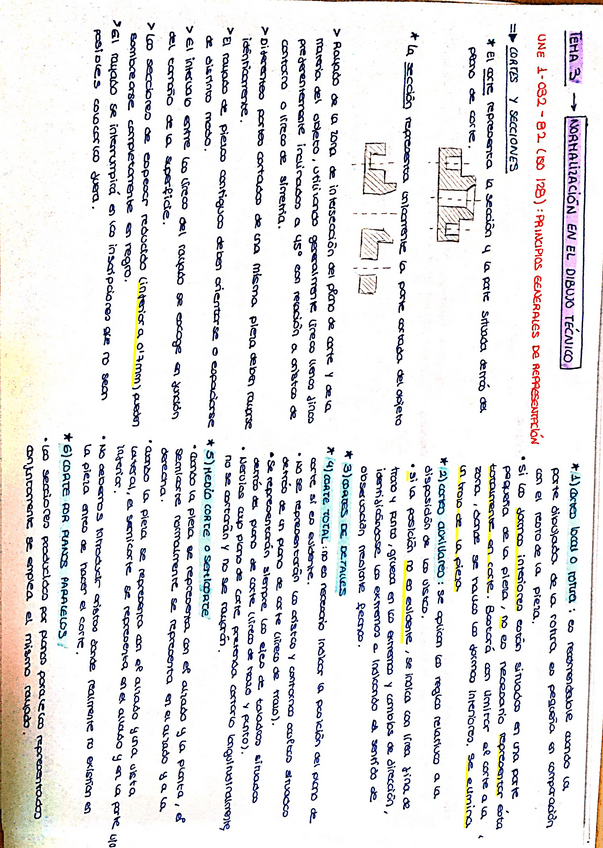 TEMA 3. → NORMALIZACIÓN EN EL DIBUJO TÉCNICO
UNE 1-032-82 (ISO 128): PRINCIPIOS GENERALES DE REPRESENTACIÓN
⇒ CORTES Y SECCIONES
* El corte representa la sección y la parte situada detrás del
plano de corte.
* La sección representa únicamente la parte cortada del objeto
> Rayado de la zona de intersección del plano de corte y de la
materia del objeto, utilizando generalmente líneas llenas finas
preferentemente inclinadas a 45° con relación a aristas de
contorno o líneas de simetría.
> Diferentes partes cortadas de una misma pieza deben rayarse
idénticamente.
> El rayado de piezas contiguas deben orientarse o espaciarse
de distinto modo.
> El intervalo entre las líneas del rayado se escoge en función
del tamaño de la superficie.
> Las secciones de espesor reducido (inferior a 0'7mm) pueden
sombrearse completamente en negro.
> El rayado se interrumpirá en las inscripciones que no sean
posibles colocarlas fuera.
* 1) Corte local o rotura: es recomendable cuando la
parte dibujada de la rotura es pequeña en comparación
con el resto de la pieza.
• Si los detalles interiores están situados en una parte
pequeña de la pieza, no es necesario representar ésta
totalmente en corte. Bastará con limitar el corte a la
zona, donde se hallan los detalles interiores. Se elimina
un trozo de la pieza
* 2) Cortes auxiliares: se aplican las reglas relativas a la
disposición de las vistas.
• Si la posición no es evidente, se indica con línea fina de
trazo y punto, gruesa en los extremos y cambios de dirección,
identificándose los extremos e indicando el sentido de
observación mediante flechas.
* 3) CORTES DE DETALLES
* 4) CORTE TOTAL: no es necesario indicar la posición del plano de
corte si es evidente.
• No se representarán las aristas y contornos ocultos situados
detrás de un plano de corte (líneas de trazo).
• Se representarán siempre los ejes de taladros situados
detrás del plano de corte (líneas de trazo y punto).
• Nervios cuyo plano de corte, pretenda cortarlo longitudinalmente,
no se cortarán y no se rayarán.
* 5) MEDIO CORTE o SEMICORTE
• Cuando la pieza se representa con el alzado y la planta, el
semicorte normalmente se representa en el alzado y a la
derecha.
• Cuando la pieza se representa con el alzado y una vista
lateral, el semicorte se representa en el alzado y en la parte
inferior.
• No debemos introducir aristas donde realmente no existían en
la pieza antes de hacer el corte.
* 6) CORTE POR PLANOS PARALELOS
• Las secciones producidas por planos paralelos representados
conjuntamente se emplea el mismo rayado.